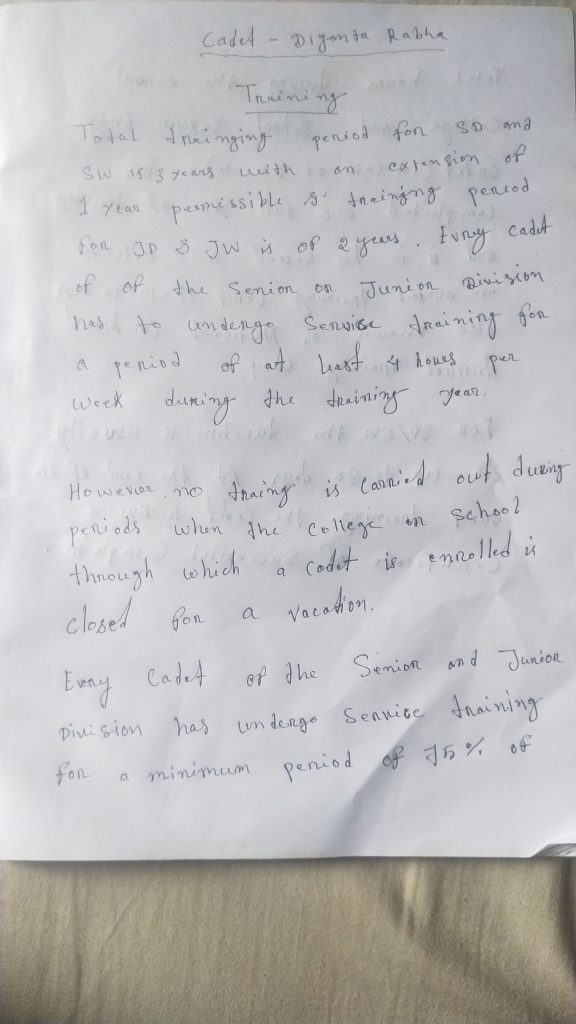 Cadet - Diganta Rabha
Training
Total trainging period for SD and
SW is 3 years with an extension of
1 year permissible & training period
for JD & JW is of 2 years. Every cadet
of of the Senior or Junior Division
has to undergo Service training for
a period of at least 4 hours per
week during the training year.
However, no traing is carried out during
periods when the college or school
through which a cadet is enrolled is
closed for a vacation.
Every Cadet of the Senior and Junior
Division has undergo Service training
for a minimum period of 75% of